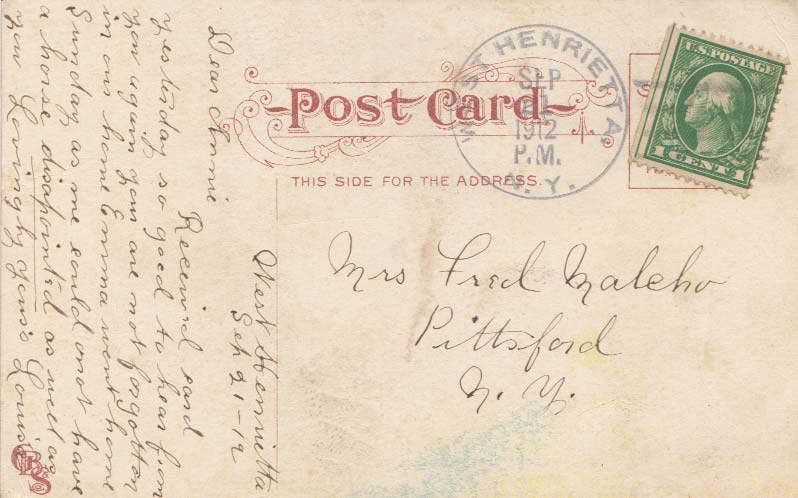 Post Card
THIS SIDE FOR THE ADDRESS.
WEST HENRIETTA,
SEP
1912
P.M.
N. Y.
U.S. POSTAGE
1 CENT 1
Mrs Fred Malcho
Pittsford
N. Y.
West Henrietta
Sep 21-12
Dear Annie
Receivd card
yesterday so good to hear from
you again you are not forgotten
in our home Emma went home
Sunday as me could not have
a horse disapointed as well as
you Lovingly yours Louise